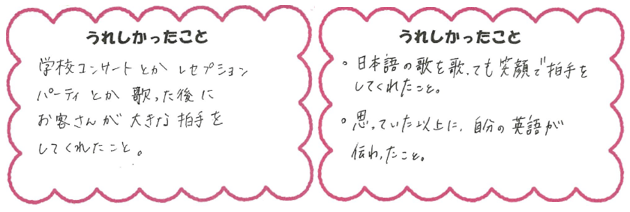 うれしかったこと
学校コンサートとか レセプション
パーティとか 歌った後に
お客さんが 大きな拍手を
してくれたこと。
うれしかったこと
。日本語の歌を歌っても笑顔で拍手を
してくれたこと。
。思っていた以上に、自分の英語が
伝わったこと。